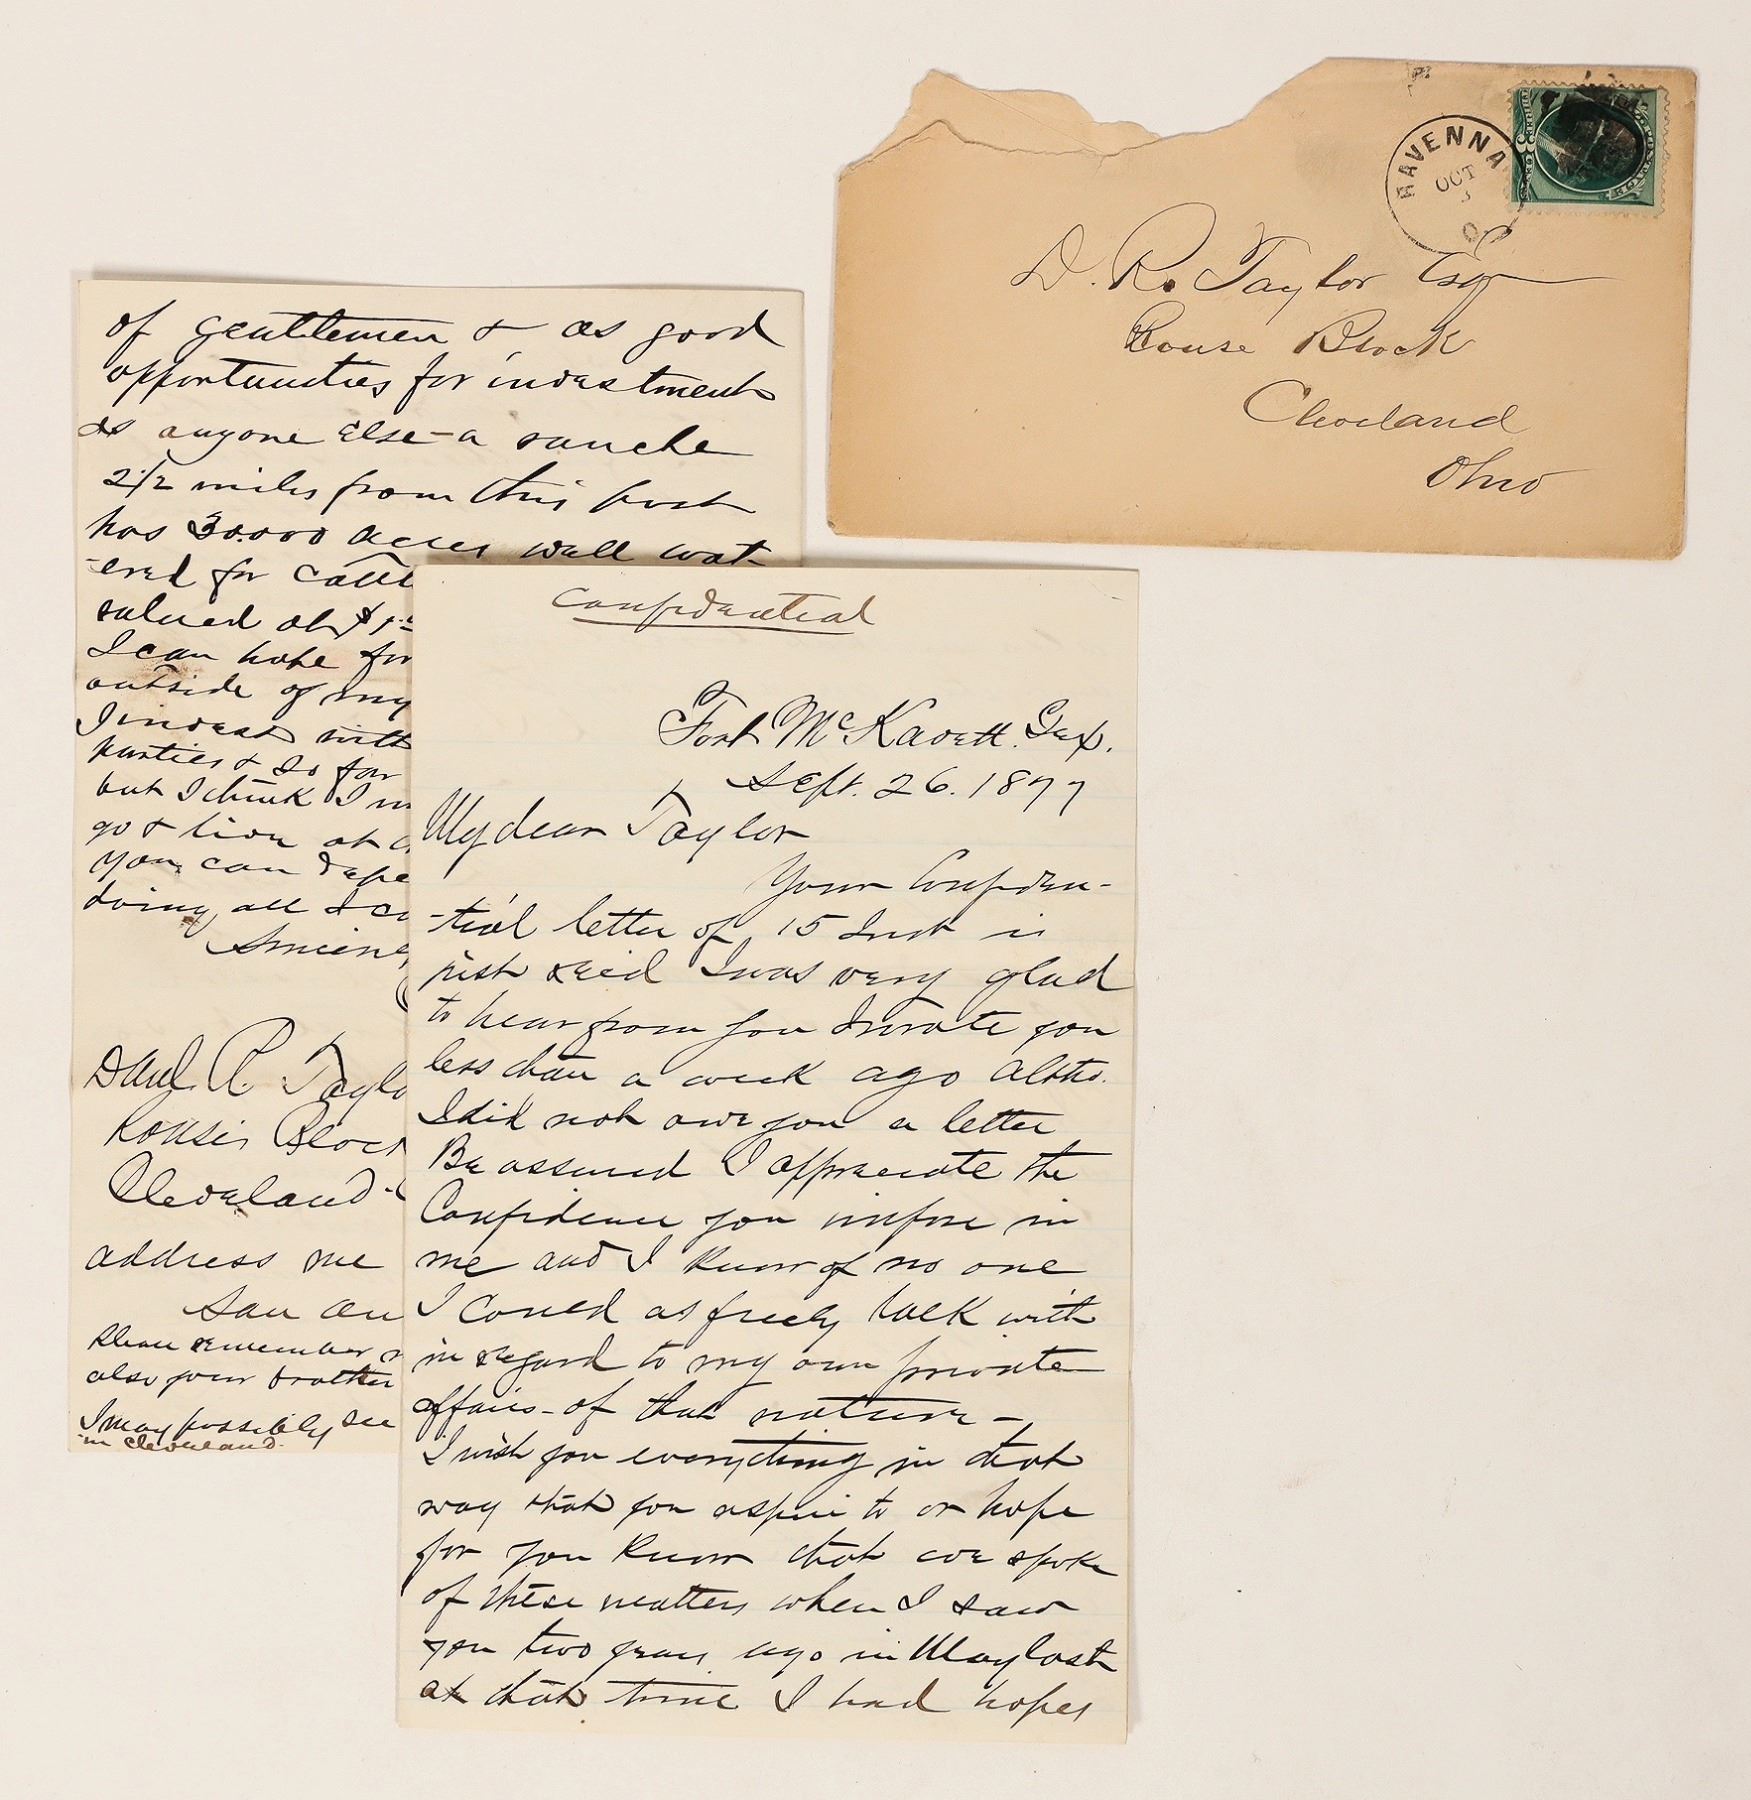 RAVENNA
OCT
3
O.
D. R. Taylor Esq
Rouse Block
Cleveland
Ohio
of gentlemen & as good
opportunities for investment
as anyone else – a ranche
2 1/2 miles from this post
has 30.000 acres well wat-
-ered for cattl
valued at $1
I can hope for
outside of my
I invest with
parties & so far
but I think I m
go & live at
you can depe
doing all I c
Sincere
Danl. R. Taylo
Rouses Block
Cleveland
address me
San An
Please remember
also your brother
I may possibly see
in Cleveland.
Confidential
Fort McKavett. Tex.
Sept. 26. 1877
My dear Taylor
Your Confiden-
-tial letter of 15 Inst is
just recd I was very glad
to hear from you I wrote you
less than a week ago altho.
I did not owe you a letter
Be assured I appreciate the
Confidence you impose in
me and I know of no one
I could as freely talk with
in regard to my own private
affairs – of that nature –
I wish you everything in that
way that you aspire to or hope
for you know that we spoke
of these matters when I saw
you two years ago in May last
at that time I had hopes